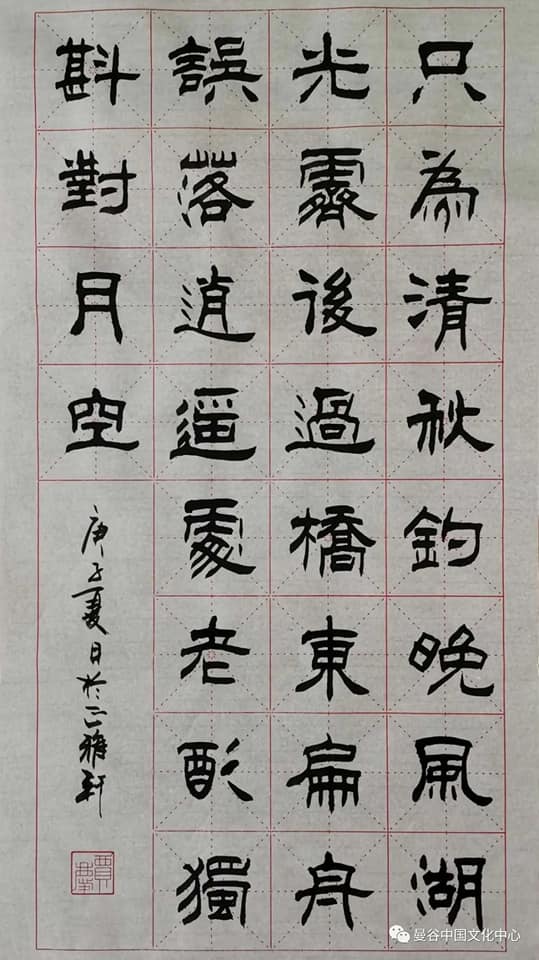 只為清秋釣晚風湖
光霽後過橋東扁舟
誤落逍遙處老獨
斟對月空
庚子夏日於三雅軒
曼谷中国文化中心